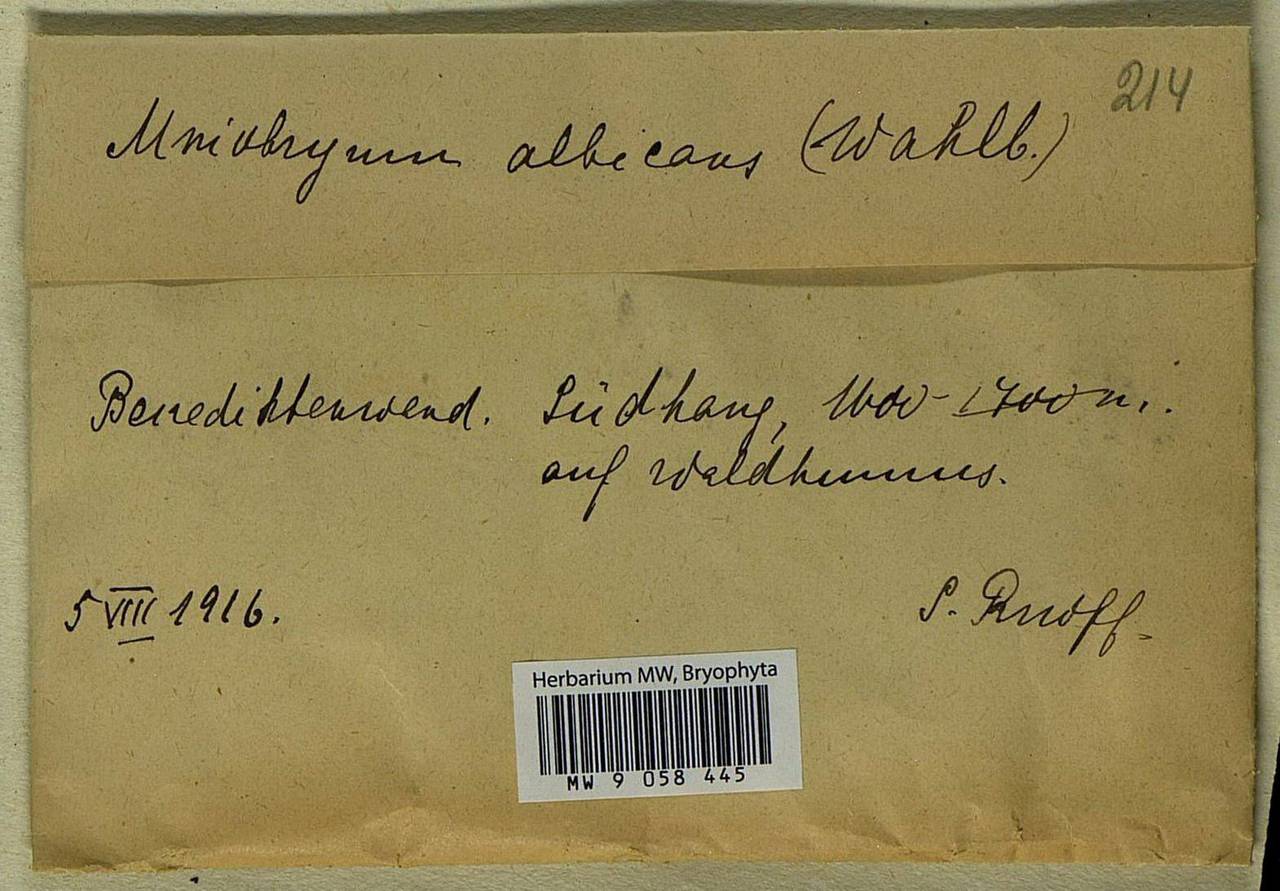 214
Mniobryum albicans (Wahlb.)
Benediktenwend. Südhang, 1600-1700 m.
auf Waldhumus.
5 VIII 1916.
Herbarium MW, Bryophyta
MW 9 058 445